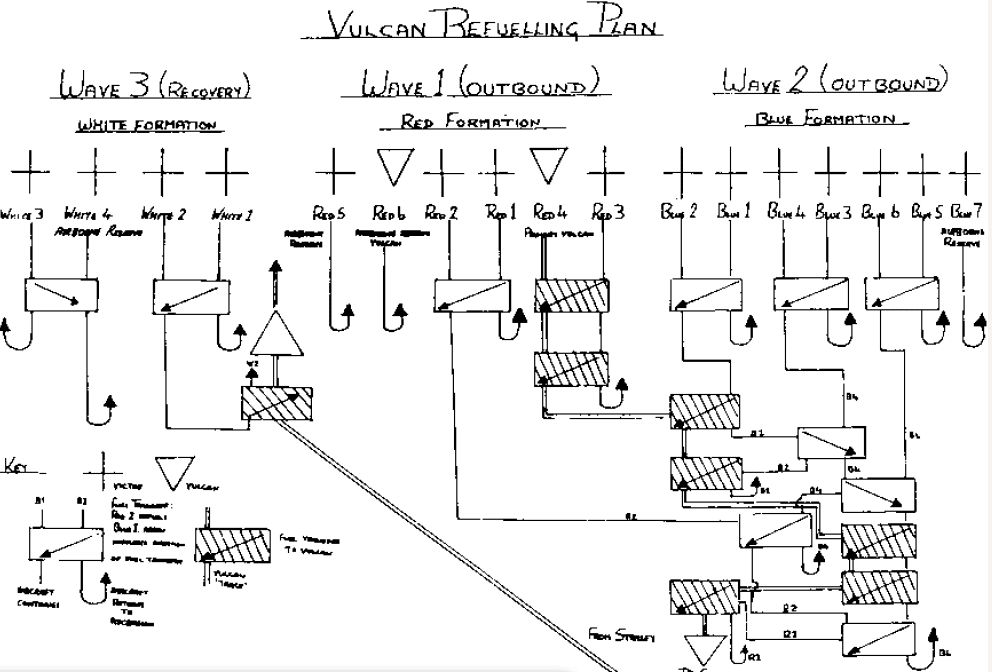 VULCAN REFUELLING PLAN
WAVE 3 (RECOVERY)
WHITE FORMATION
WAVE 1 (OUTBOUND)
RED FORMATION
WAVE 2 (OUTBOUND)
BLUE FORMATION
WHITE 3
WHITE 4
WHITE 2
WHITE 1
AIRBORNE RESERVE
RED 5
RED 6
RED 2
RED 1
RED 4
RED 3
AIRBORNE RESERVE
AIRBORNE RESERVE VULCAN
PRIMARY VULCAN
BLUE 2
BLUE 1
BLUE 4
BLUE 3
BLUE 6
BLUE 5
BLUE 7
AIRBORNE RESERVE
W2
B4
B2
B4
B2
B1
B4
R2
R2
B6
R2
FROM STANLEY
KEY
VICTOR
VULCAN
B1
B2
FUEL TRANSFER:
OF FUEL TRANSFER
FUEL TRANSFER
TO VULCAN
VULCAN
"TRACK"
AIRCRAFT
CONTINUES
AIRCRAFT
RETURNS
TO
ASCENSION